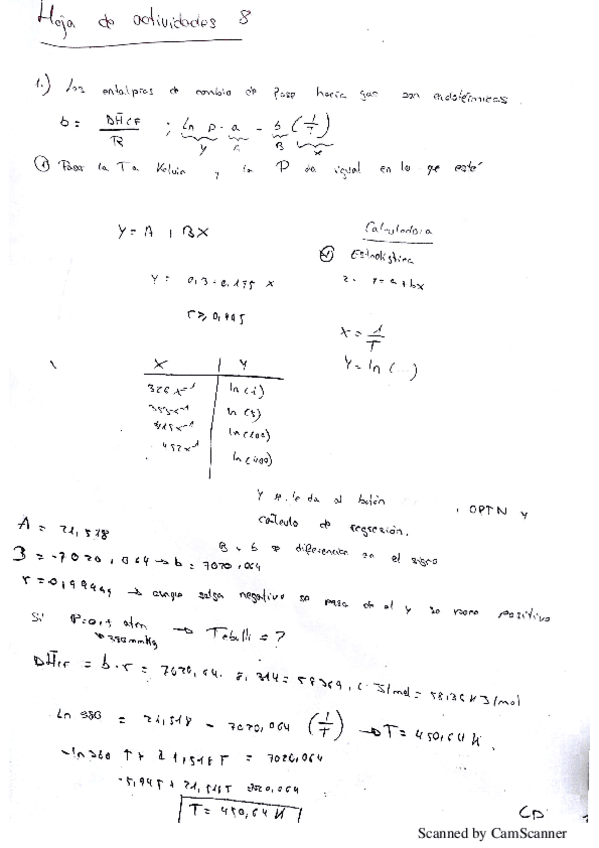 Hoja de actividades 8
1.) Las entalpías de cambio de fase hacia gas son endotérmicas.
b = ΔH̄CF / R ; Ln P = a - b (1/T)
Y A B X
① Pasar la T a Kelvin y la P da igual en lo que esté
Y = A + BX
Calculadora
Estadística
2. y=a+bx
r ≥ 0,995
X = 1/T
Y = ln (...)
X | Y
326 x⁻¹ | ln (1)
353 x⁻¹ | ln (5)
415 x⁻¹ | ln (100)
452 x⁻¹ | ln (400)
Y se le da al botón , OPTN y
cálculo de regresión.
A = 21,518
B = -7020,064 → b = 7020,064
B y b se diferencian en el signo
r = 0,99949 → aunque salga negativo se pasa de él y se pone positivo
Si → Tebulli = ?
ΔH̄CF = b·r = 7020,64 · 8,314 = 58364,6 J/mol = 58,36 KJ/mol
Ln 380 = 21,518 - 7020,064 (1/T) → T = 450,64 K.
-ln 380 T + 21,518T = 7020,064
-5,94T + 21,518T 7020,064
T = 450,64 K
Scanned by CamScanner